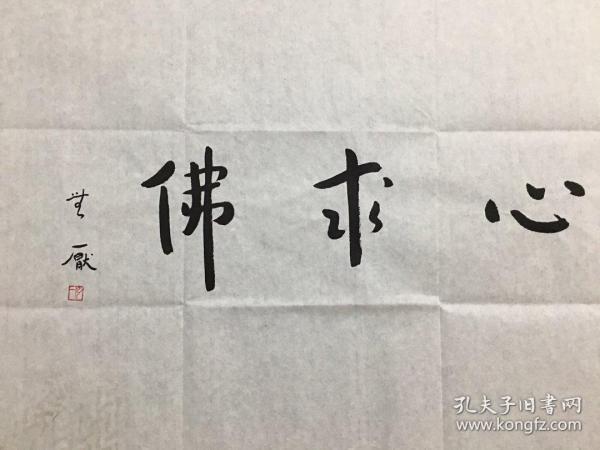 心求佛
無厭
孔夫子旧書网
www.kongfz.com